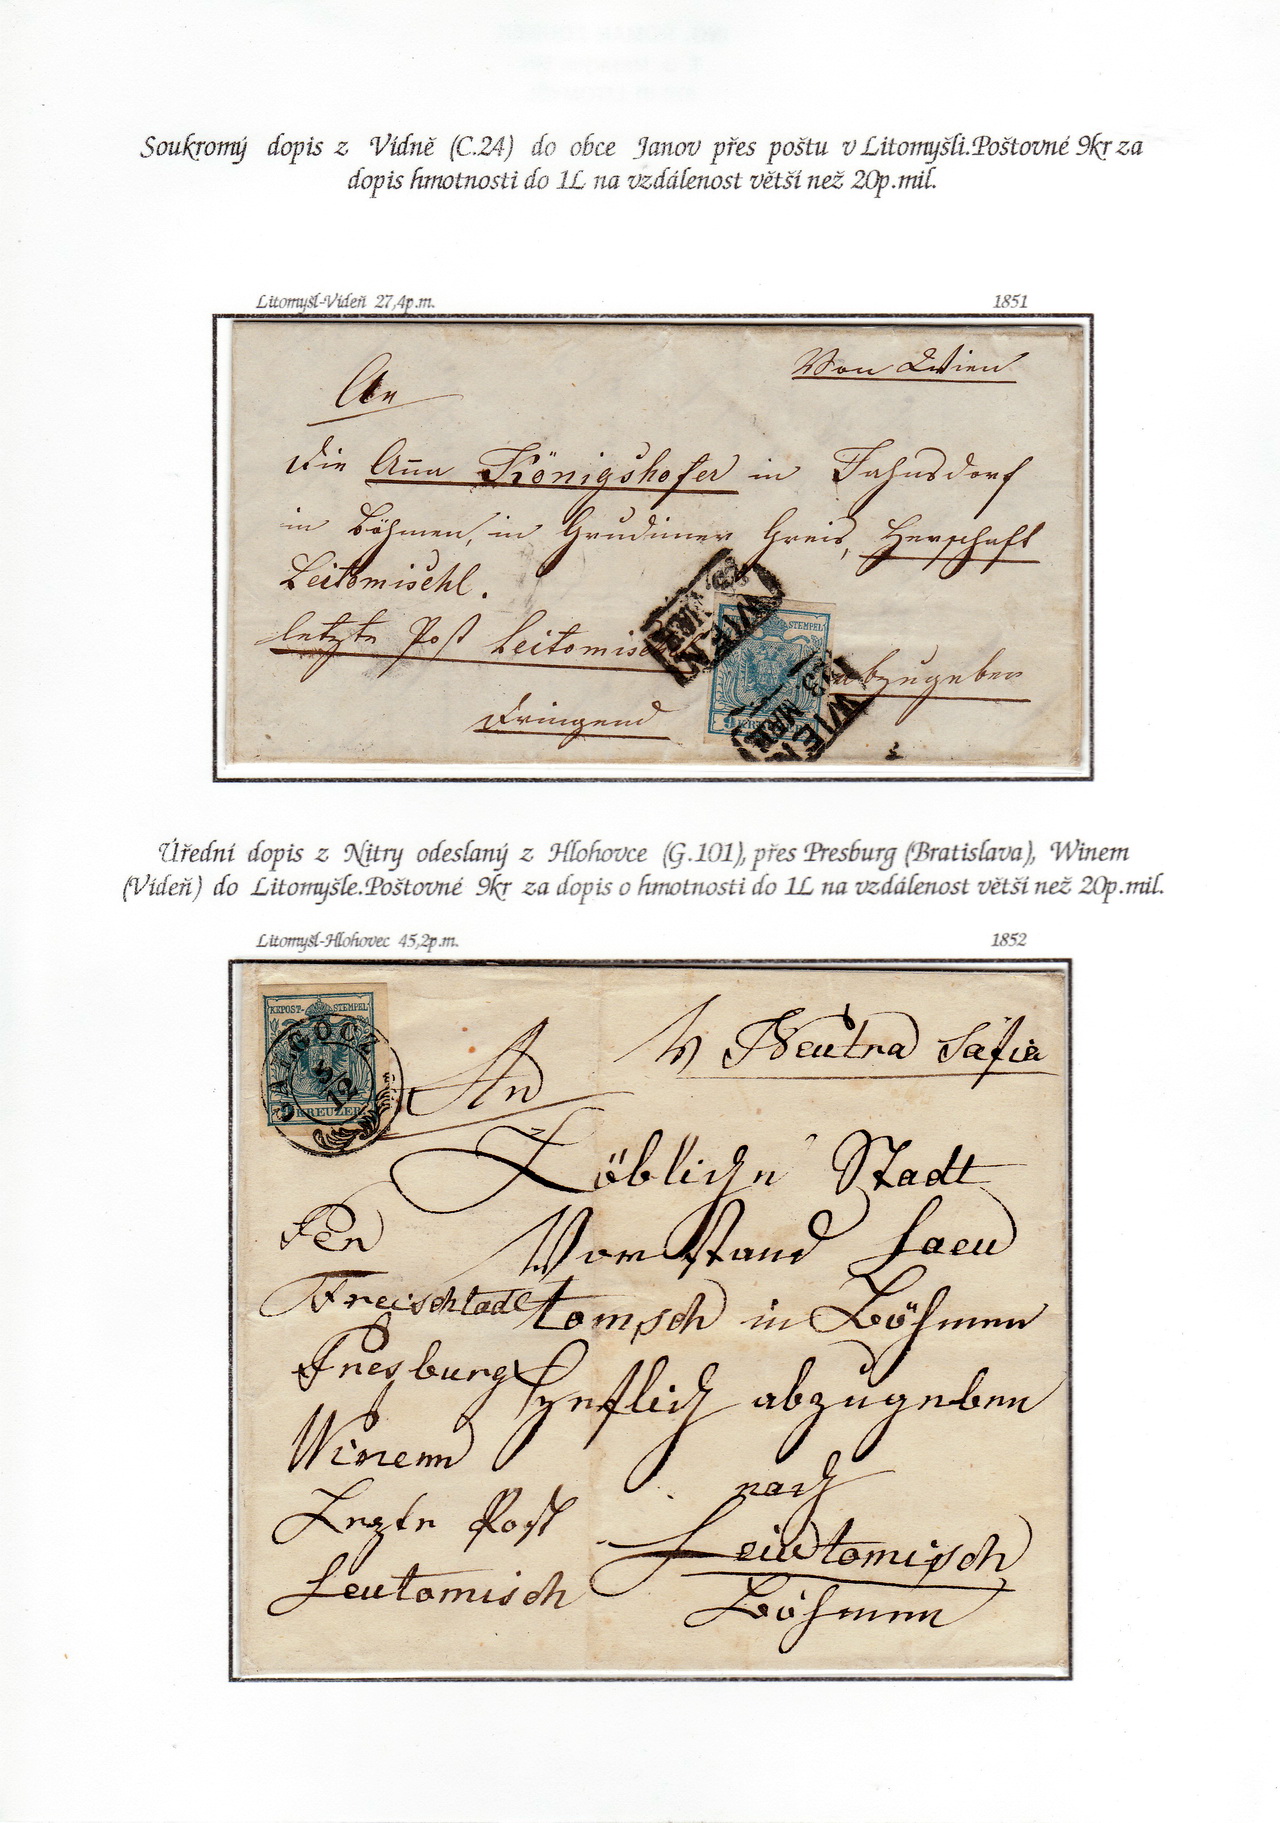 Soukromý dopis z Vídně (C.24) do obce Janov přes poštu v Litomyšli.Poštovné 9kr za
dopis hmotnosti do 1L na vzdálenost větší než 20p.mil.
Litomyšl-Vídeň 27,4p.m.
1851
Von Wien
An
die Anna Königshofer in Jahnsdorf
in Böhmen, in Grudimer Greis, Herschaft
Leitomischl.
letzte Post Leitomisc
abzugeben
dringend
WIEN
WIEN
STEMPEL
Úřední dopis z Nitry odeslaný z Hlohovce (G.101), přes Presburg (Bratislava), Winem
(Vídeň) do Litomyšle.Poštovné 9kr za dopis o hmotnosti do 1L na vzdálenost větší než 20p.mil.
Litomyšl-Hlohovec 45,2p.m.
1852
KKPOST-STEMPEL
GALGÓCZ
5/12
9 KREUZER
Neutra
An
Löblichn Stadt
Vorstand Laeu
tomsch in Böhmen
abzugeben
nach
Leiutomisch
Böhmen
Per
Freischtadl
Presburg
Winem
Lezte Post
Leutomisch